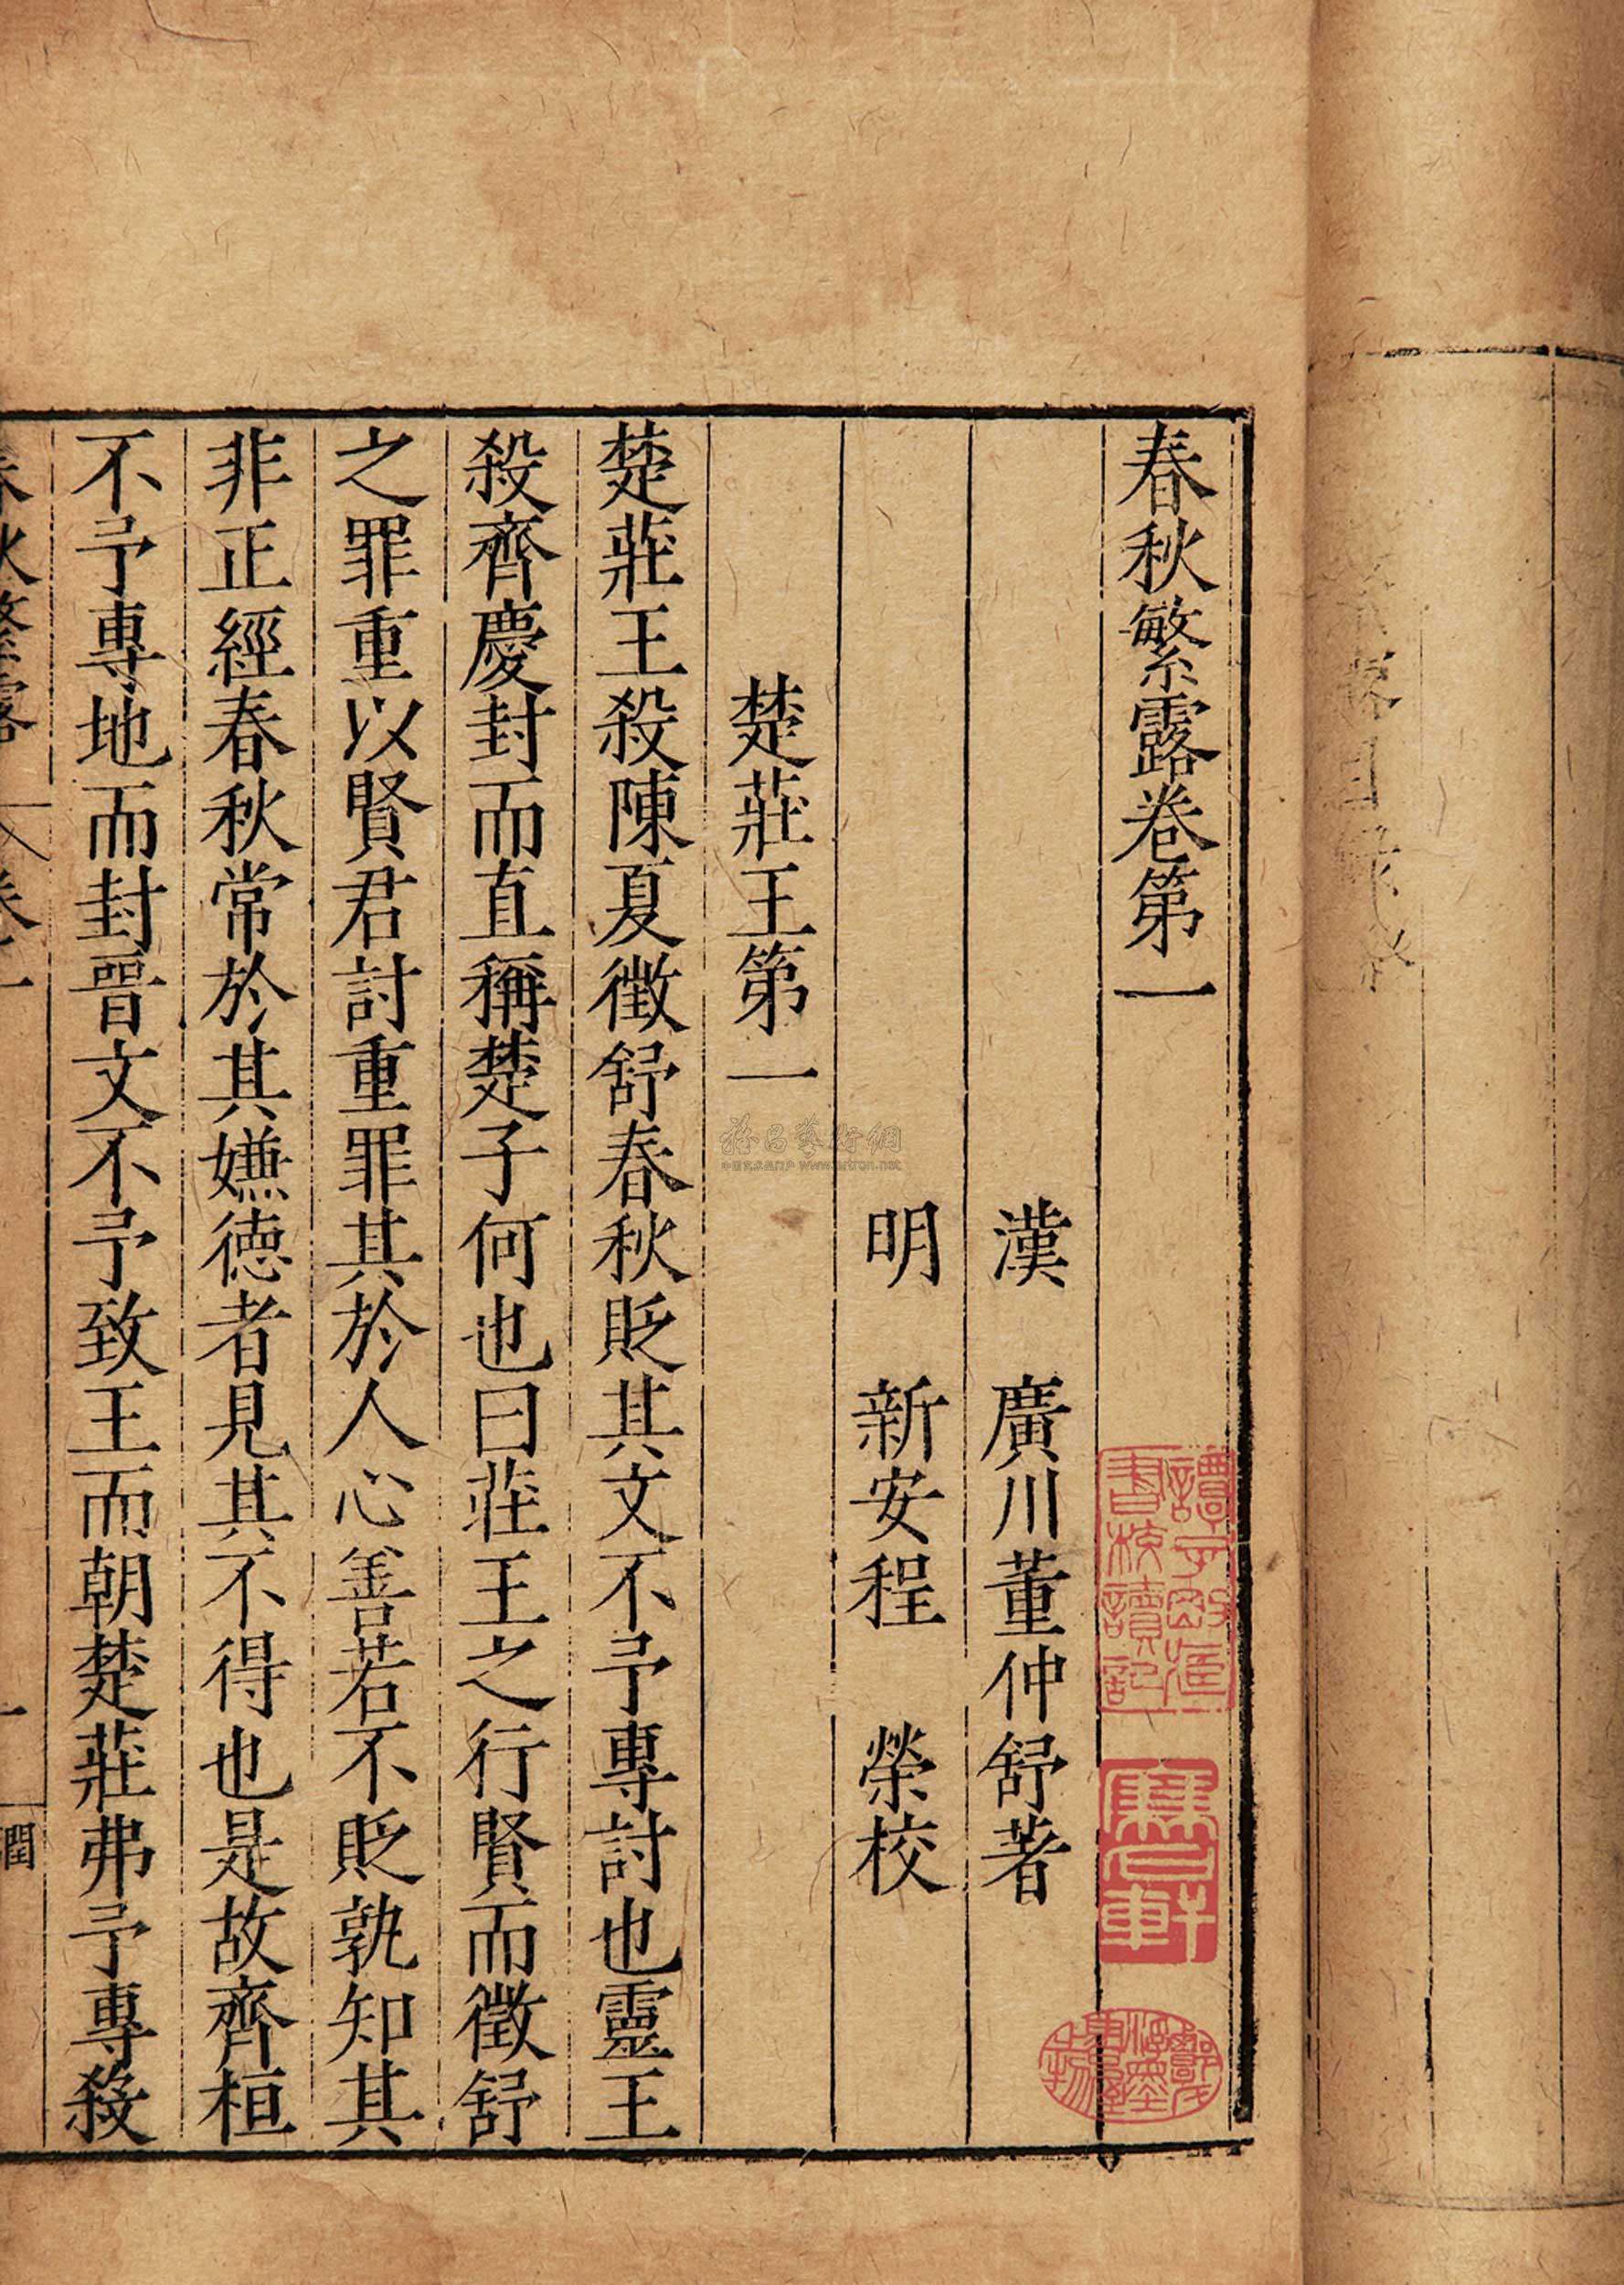 春秋繁露卷第一
漢 廣川董仲舒著
明 新安程 榮校
楚莊王第一
楚莊王殺陳夏徵舒春秋貶其文不予專討也靈王
殺齊慶封而直稱楚子何也曰莊王之行賢而徵舒
之罪重以賢君討重罪其於人心善若不貶孰知其
非正經春秋常於其嫌德者見其不得也是故齊桓
不予專地而封晉文不予致王而朝楚莊弗予專殺
春秋繁露 卷一 一 潤
www.artron.net